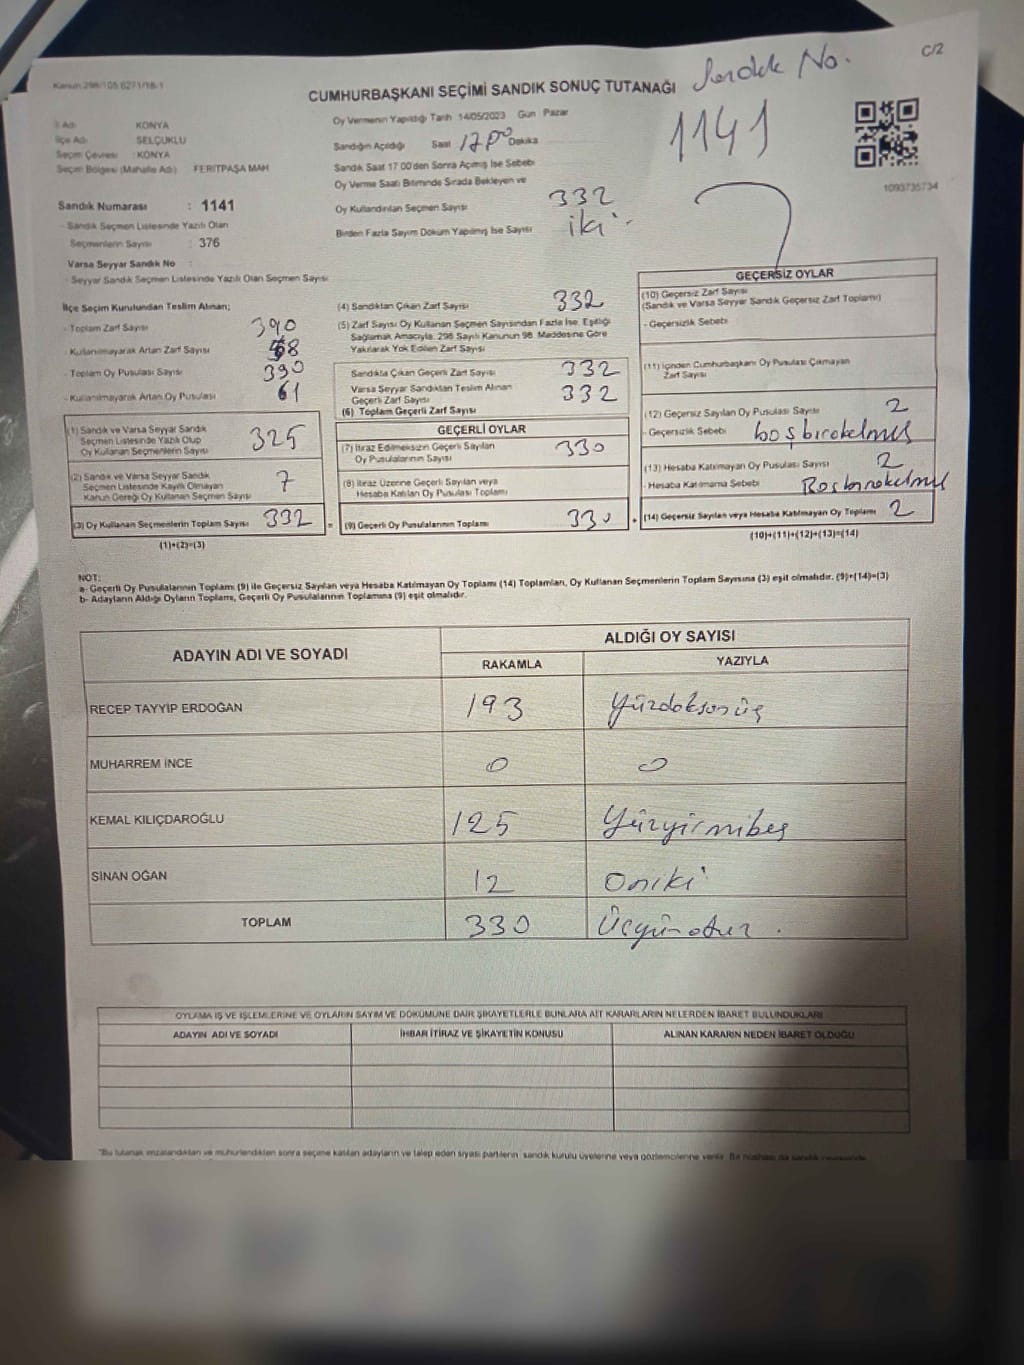 Kanun 298/105 6271/18-1
C/2
CUMHURBAŞKANI SEÇİMİ SANDIK SONUÇ TUTANAĞI
Sandık No.
1141
İl Adı KONYA
İlçe Adı SELÇUKLU
Seçim Çevresi : KONYA
Seçim Bölgesi (Mahalle Adı) FERİTPAŞA MAH
Sandık Numarası : 1141
- Sandık Seçmen Listesinde Yazılı Olan
Seçmenlerin Sayısı : 376
Varsa Seyyar Sandık No :
- Seyyar Sandık Seçmen Listesinde Yazılı Olan Seçmen Sayısı
Oy Vermenin Yapıldığı Tarih 14/05/2023 Gün Pazar
Sandığın Açıldığı Saat 17 00 Dakika
Sandık Saat 17:00'den Sonra Açılmış İse Sebebi
Oy Verme Saati Bitiminde Sırada Bekleyen ve
Oy Kullandırılan Seçmen Sayısı 332
Birden Fazla Sayım Döküm Yapılmış İse Sayısı iki
1093735734
İlçe Seçim Kurulundan Teslim Alınan;
- Toplam Zarf Sayısı 390
- Kullanılmayarak Artan Zarf Sayısı 58
- Toplam Oy Pusulası Sayısı 390
- Kullanılmayarak Artan Oy Pusulası 61
(1) Sandık ve Varsa Seyyar Sandık
Seçmen Listesinde Yazılı Olup
Oy Kullanan Seçmenlerin Sayısı 325
(2) Sandık ve Varsa Seyyar Sandık
Seçmen Listesinde Kayıtlı Olmayan
Kanun Gereği Oy Kullanan Seçmen Sayısı 7
(3) Oy Kullanan Seçmenlerin Toplam Sayısı 332 =
(1)+(2)=(3)
(4) Sandıktan Çıkan Zarf Sayısı 332
(5) Zarf Sayısı Oy Kullanan Seçmen Sayısından Fazla İse, Eşitliği
Sağlamak Amacıyla, 298 Sayılı Kanunun 98. Maddesine Göre
Yakılarak Yok Edilen Zarf Sayısı
Sandıkta Çıkan Geçerli Zarf Sayısı 332
Varsa Seyyar Sandıktan Teslim Alınan
Geçerli Zarf Sayısı 332
(6) Toplam Geçerli Zarf Sayısı
GEÇERLİ OYLAR
(7) İtiraz Edilmeksizin Geçerli Sayılan
Oy Pusulalarının Sayısı 330
(8) İtiraz Üzerine Geçerli Sayılan veya
Hesaba Katılan Oy Pusulası Toplamı
(9) Geçerli Oy Pusulalarının Toplamı 330 +
GEÇERSİZ OYLAR
(10) Geçersiz Zarf Sayısı
(Sandık ve Varsa Seyyar Sandık Geçersiz Zarf Toplamı)
- Geçersizlik Sebebi
(11) İçinden Cumhurbaşkanı Oy Pusulası Çıkmayan
Zarf Sayısı
(12) Geçersiz Sayılan Oy Pusulası Sayısı 2
- Geçersizlik Sebebi boş bırakılmış
(13) Hesaba Katılmayan Oy Pusulası Sayısı 2
- Hesaba Katılmama Sebebi Boş bırakılmış
(14) Geçersiz Sayılan veya Hesaba Katılmayan Oy Toplamı 2
(10)+(11)+(12)+(13)=(14)
NOT:
a- Geçerli Oy Pusulalarının Toplamı (9) ile Geçersiz Sayılan veya Hesaba Katılmayan Oy Toplamı (14) Toplamları, Oy Kullanan Seçmenlerin Toplam Sayısına (3) eşit olmalıdır. (9)+(14)=(3)
b- Adayların Aldığı Oyların Toplamı, Geçerli Oy Pusulalarının Toplamına (9) eşit olmalıdır.
ADAYIN ADI VE SOYADI ALDIĞI OY SAYISI
RAKAMLA YAZIYLA
RECEP TAYYİP ERDOĞAN 193 Yüzdoksonüç
MUHARREM İNCE 0 0
KEMAL KILIÇDAROĞLU 125 Yüzyirmibeş
SİNAN OĞAN 12 Oniki
TOPLAM 330 Üçyüzotuz.
OYLAMA İŞ VE İŞLEMLERİNE VE OYLARIN SAYIM VE DÖKÜMÜNE DAİR ŞİKAYETLERLE BUNLARA AİT KARARLARIN NELERDEN İBARET BULUNDUKLARI
ADAYIN ADI VE SOYADI İHBAR İTİRAZ VE ŞİKAYETİN KONUSU ALINAN KARARIN NEDEN İBARET OLDUĞU
*Bu tutanak imzalandıktan ve mühürlendikten sonra seçime katılan adayların ve talep eden siyasi partilerin sandık kurulu üyelerine veya gözlemcilerine verilir.